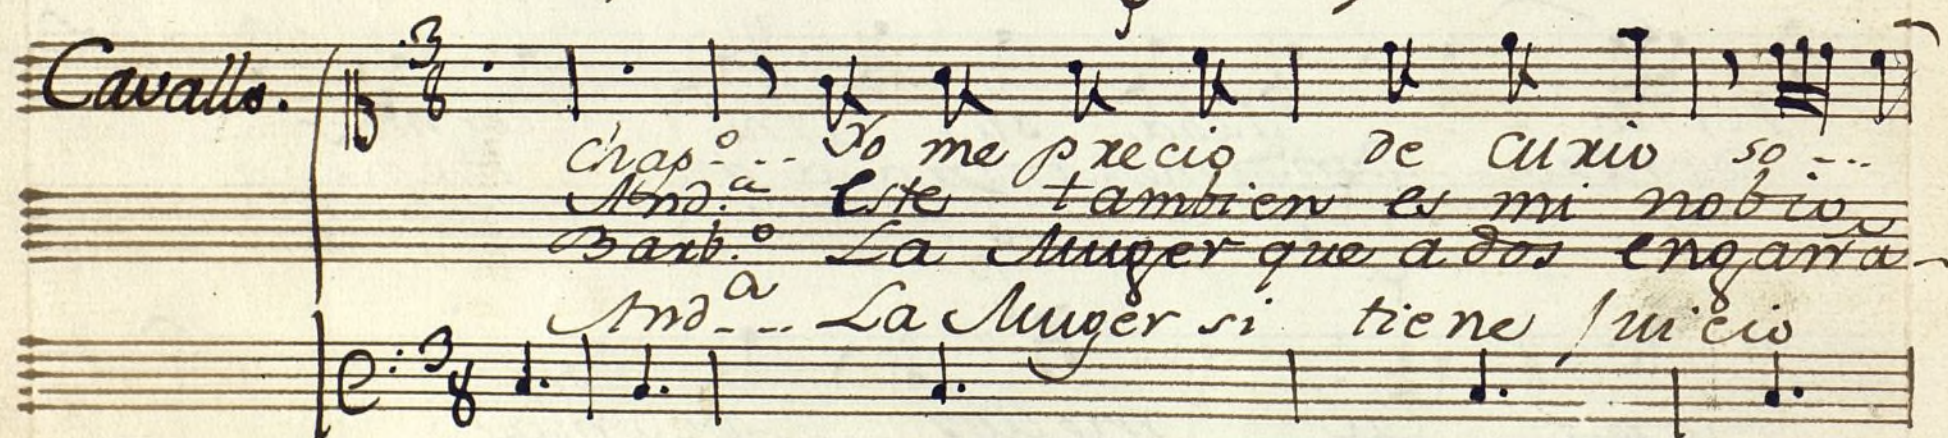 Cavallo.
Chap.º... Yo me precio de curio so---
And.ª Este tambien es mi nobio
Barb.º La Muger que a dos engaña
And.ª... La Muger si tiene Juicio